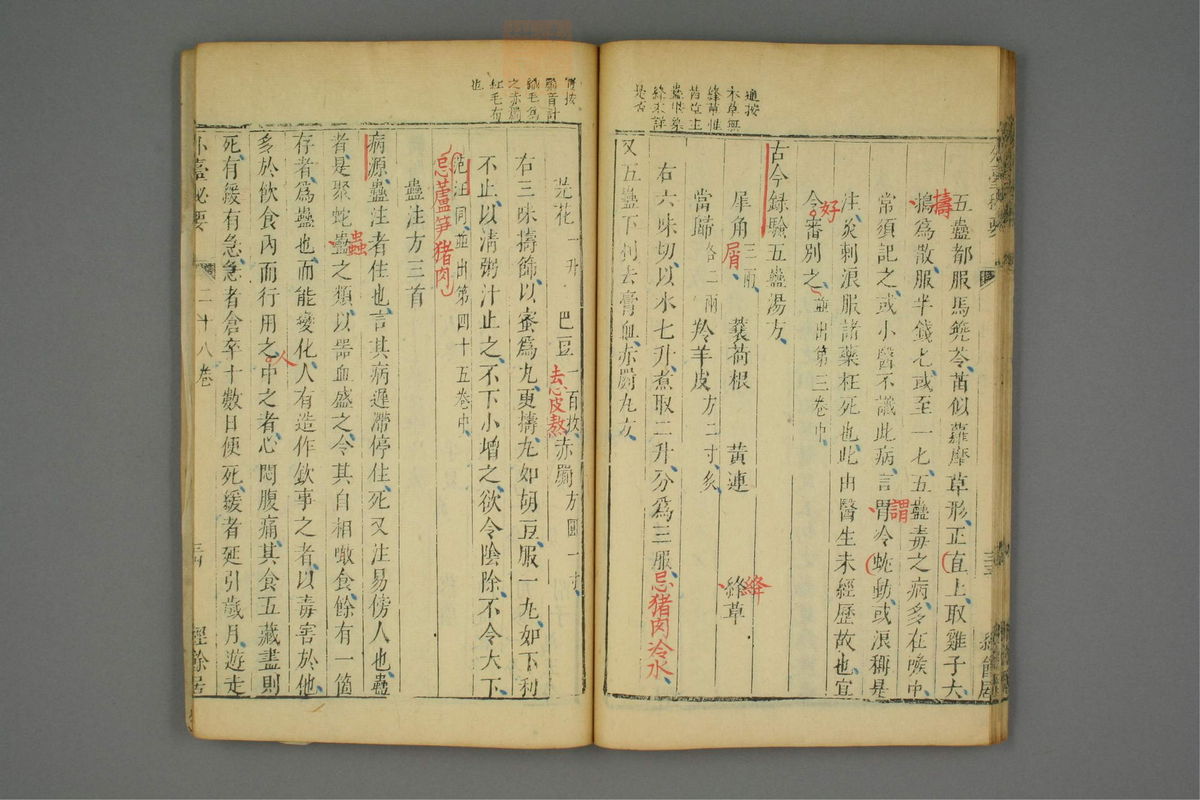 通按
本草無
絳草惟
五蠱都服馬兜苓苗似蘿摩草形正直上取雞子大
擣
搗爲散服半錢匕或至一匕五蠱毒之病多在喉中
常須記之或小醫不識此病言胃冷蚘動或浪稱是
謂
注炙刺浪服諸藥枉死也此由醫生未經歷故也宜
好
令審別之並出第三卷中
古今録驗五蠱湯方
犀角三兩 蘘荷根 黃連 絳草
屑
絳
當歸各二兩 羚羊皮方二寸炙
右六味切以水七升煮取二升分爲三服
忌猪肉冷水
又五蠱下利去膏血赤罽丸方
經餘居
芫花一升 巴豆一百枚 赤罽方圓一寸
去心皮熬
右三味擣篩以蜜爲丸更擣丸如胡豆服一丸如下利
不止以清粥汁止之不下小增之欲令陰除不令大下
范汪同並出第四十五卷中
忌蘆笋猪肉
蠱注方三首
病源蠱注者住也言其病遲滯停住死又注易傍人也蠱
者是聚蛇蠱之類以器皿盛之令其自相噉食餘有一箇
蟲
存者爲蠱也而能變化人有造作欽事之者以毒害於他
多於飲食內而行用之中之者心悶腹痛其食五藏盡則
人
死有緩有急急者倉卒十數日便死緩者延引歲月遊走
外臺秘要
二十八卷
經餘居